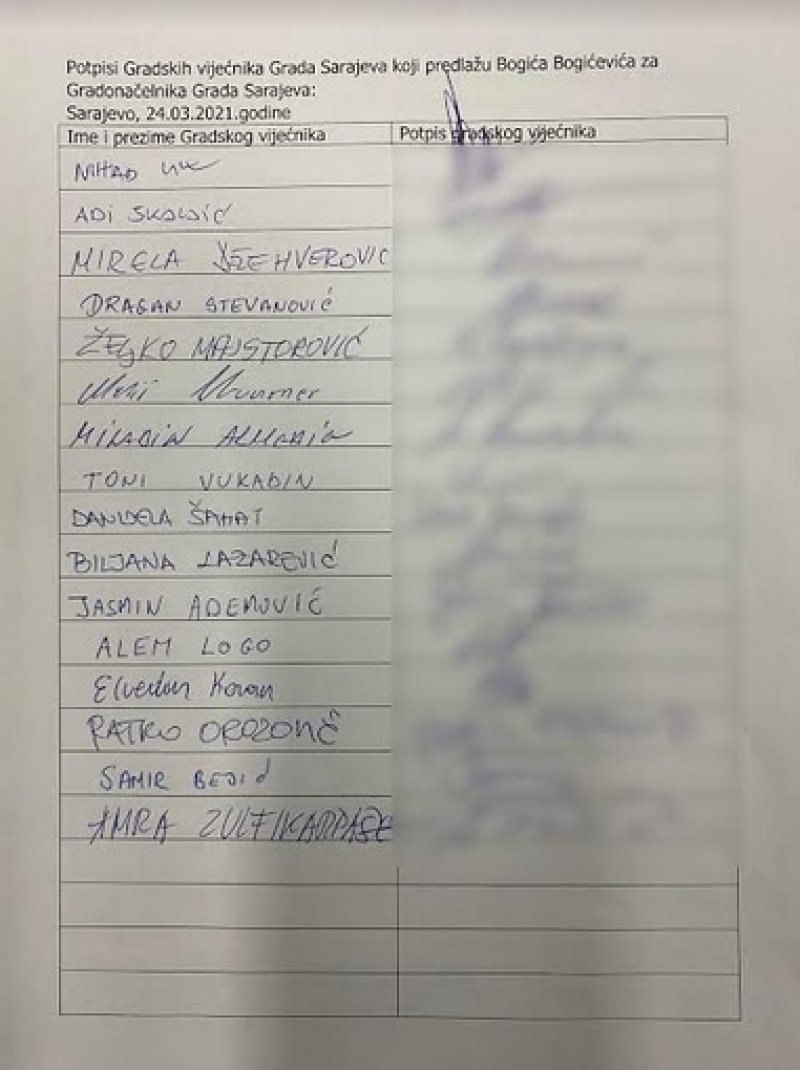 Potpisi Gradskih vijećnika Grada Sarajeva koji predlažu Bogića Bogićevića za
Gradonačelnika Grada Sarajeva:
Sarajevo, 24.03.2021.godine
Ime i prezime Gradskog vijećnika Potpis gradskog vijećnika
NIHAD UK
ADI ŠKALJIĆ
MIRELA DŽEHVEROVIĆ
DRAGAN STEVANOVIĆ
ŽELJKO MAJSTOROVIĆ
MILADIN
TONI VUKADIN
DANIJELA ŠAHAT
BILJANA LAZAREVIĆ
JASMIN ADEMOVIĆ
ALEM LOGO
Elvedin
RATKO OROZOVIĆ
SAMIR BEJIĆ
AMRA ZULFIKARPAŠIĆ